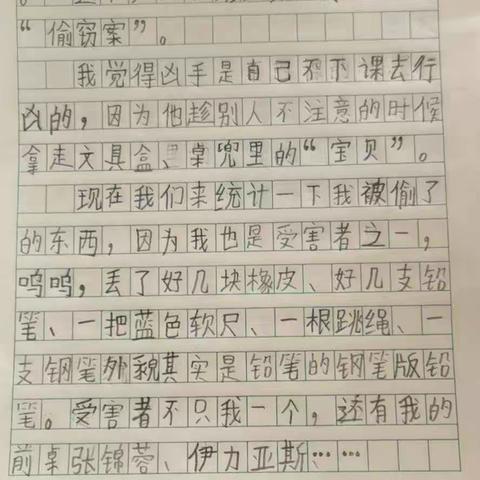 “偷窃案”。
我觉得凶手是自己不下课去行
凶的，因为他趁别人不注意的时候
拿走文具盒、桌兜里的“宝贝”。
现在我们来统计一下我被偷了
的东西，因为我也是受害者之一，
呜呜，丢了好几块橡皮、好几支铅
笔、一把蓝色软尺、一根跳绳、一
支钢笔外貌其实是铅笔的钢笔版铅
笔。受害者不只我一个，还有我的
前桌张锦蓉、伊力亚斯……